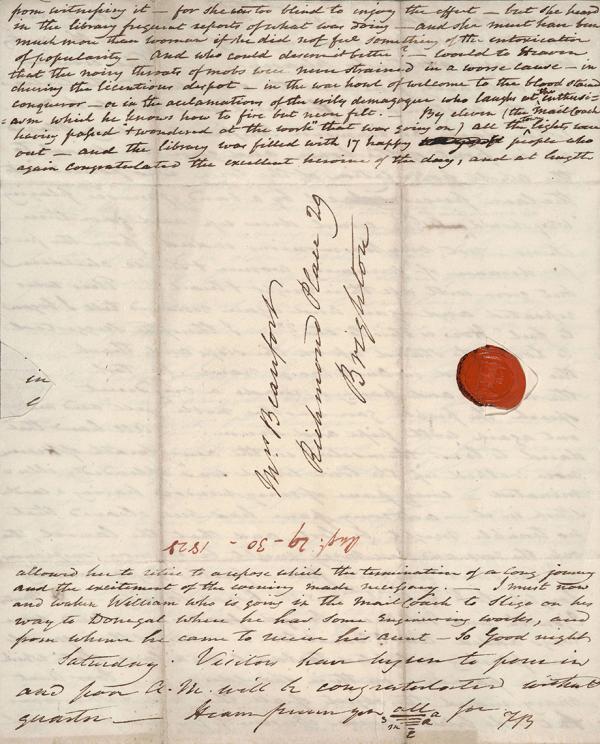 from witnessing it – for she was too blind to enjoy the effect – but she heard
in the library frequent reports of what was doing – and she must have been
much more than woman if she did not feel something of the intoxication
of popularity – And who could deserve it better? – would to Heaven
that the noisy throats of mobs were never strained in a worse cause – in
cheering the licentious despot – in the war hoot of welcome to the blood stained
conqueror – or in the acclamations of the wily demagogue who laughs at the enthusi=
=asm which he knows how to fire but never felt. – By eleven (the Mail Coach
having passed & wondered at the work that was going on) all the lights were
out – and the library was filled with 17 happy people who
again congratulated the excellent heroine of the day, and at length
Mrs Beaufort
Richmond Place 29
Brighton
in
Augt. 29-30 - 1825
allowed her to retire to a repose which the termination of a long journey
and the excitement of the evening made necessary. – I must now
and waken William who is going in the Mail Coach to Sligo on his
way to Donegal where he has some Engineering works, and
from whence he came to receive his aunt – So Good night
Saturday. Visitors have begun to pour in
and poor A. M. will be congratulated without
quarter – Heaven preserve you all for
FB